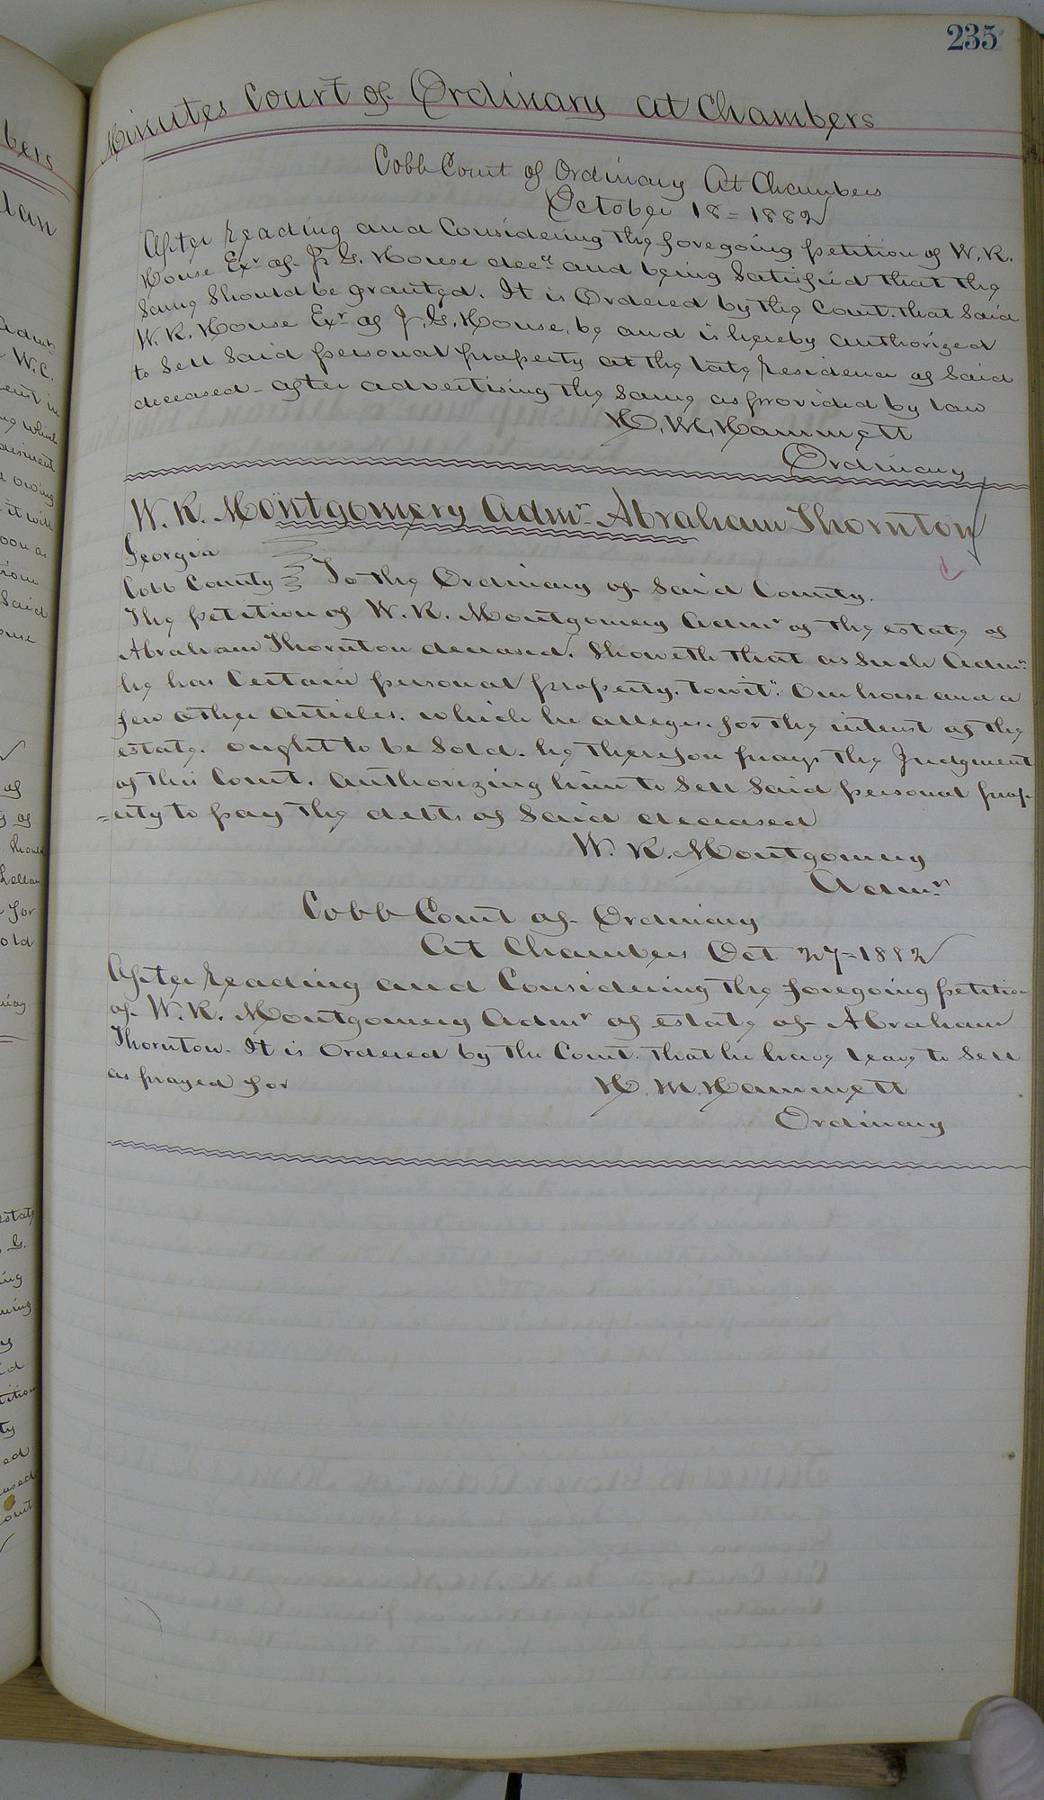 235
Minutes Court of Ordinary at Chambers
Cobb Court of Ordinary At Chambers
October 18=1882
After reading and Considering the foregoing petition of W.R.
House Exr of J. G. House decd and being Satisfied that the
Same Should be granted. It is Ordered by the Court. that Said
W. R. House Exr of J. G. House, be and is hereby authorized
to Sell Said personal property at the late residence of Said
deceased - after advertising the Same as provided by law
H. M. Hammett
Ordinary
W. R. Montgomery Admr Abraham Thornton
Georgia
Cobb County To the Ordinary of Said County.
The petition of W. R. Montgomery Admr of the estate of
Abraham Thornton deceased. Showeth that as Such Admr
he has Certain personal property. towit: One horse and a
few other articles. which he alleges. for the interest of the
estate. ought to be Sold. he therefore prays the Judgment
of this Court. authorizing him to Sell Said personal prop-
=erty to pay the debts of Said deceased
W. R. Montgomery
Admr
Cobb Court of Ordinary
At Chambers Oct 27=1882
After reading and Considering the foregoing petition
of W. R. Montgomery Admr of estate of Abraham
Thornton. It is Ordered by the Court. that he have leave to Sell
as prayed for
H. M. Hammett
Ordinary